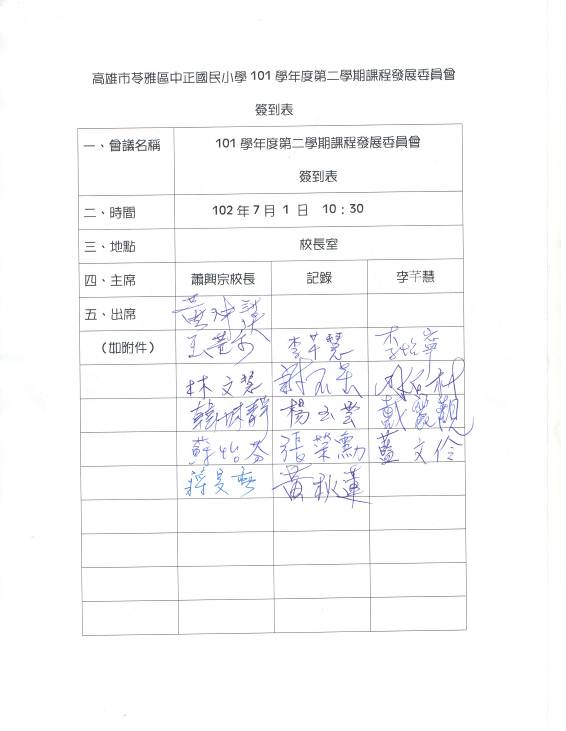 高雄市苓雅區中正國民小學101學年度第二學期課程發展委員會
簽到表
一、會議名稱 101學年度第二學期課程發展委員會
簽到表
二、時間 102年7月1日 10:30
三、地點 校長室
四、主席 蕭興宗校長 記錄 李芊慧
五、出席
(如附件) 李芊慧 李怡寧
林文慧
楊玉雲
蘇怡芬 張榮勳 藍文伶
蔣旻 黃秋蓮